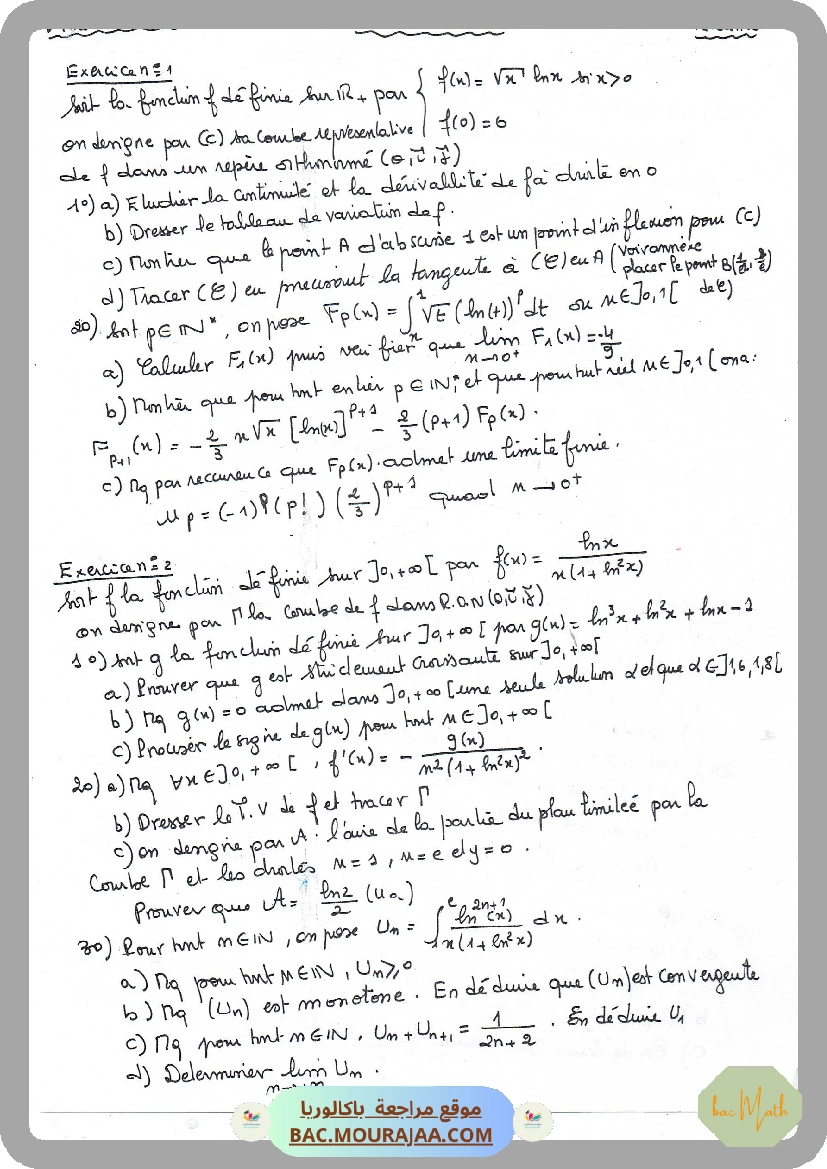 Exercice n=1
soit la fonction f définie sur IR+ par { f(x) = √x lnx si x>0
f(0) = 0
on designe par (C) sa courbe representative
de f dans un repère orthonormé (o, i, j)
1°) a) Etudier la continuité et la dérivabilité de f à droite en 0
b) Dresser le tableau de variation de f.
c) Montrer que le point A d'abscisse 1 est un point d'inflexion pour (C)
d) Tracer (C) en precisant la tangente à (C) en A (
placer le point B( de C)
2°) soit p ∈ IN*, on pose Fp(x) = ∫_x^1 √t (ln(t))^p dt où x ∈ ]0,1[
a) Calculer F1(x) puis verifier que lim_{x→0+} F1(x) = -4/9
b) Montrer que pour tout entier p ∈ IN*, et que pour tout réel x ∈ ]0,1[ on a:
F_{p+1}(x) = -2/3 x√x [ln(x)]^{p+1} - 2/3 (p+1) Fp(x).
c) Mq par reccurence que Fp(x) admet une limite finie.
Mp = (-1)^p (p!) (2/3)^{p+1} quand x → 0+
Exercice n=2
soit f la fonction définie sur ]0,+∞[ par f(x) = lnx / x(1+ln²x)
on designe par Γ la courbe de f dans R.O.N (O, i, j)
1°) soit g la fonction définie sur ]0,+∞[ par g(x) = ln³x + ln²x + lnx - 1
a) Prouver que g est strictement croissante sur ]0,+∞[
b) Mq g(x) = 0 admet dans ]0,+∞[ une seule solution α et que α ∈ ]1,6, 1,8[
c) Preciser le signe de g(x) pour tout x ∈ ]0,+∞[
2°) a) Mq ∀x ∈ ]0,+∞[, f'(x) = - g(x) / x²(1+ln²x)².
b) Dresser le T.V de f et tracer Γ
c) on designe par A : l'aire de la partie du plan limiteé par la
Courbe Γ et les droites x = 1, x = e et y = 0.
Prouver que A = ln2/2 (u.a)
3°) Pour tout n ∈ IN, on pose Un = ∫_1^e ln^{2n+1}(x) / x(1+ln²x) dx.
a) Mq pour tout n ∈ IN, Un ≥ 0
b) Mq (Un) est monotone. En déduire que (Un) est convergente
c) Mq pour tout n ∈ IN, Un + Un+1 = 1 / 2n+2. En déduire U1
d) Determiner lim Un.
n→+∞
موقع مراجعة باكالوريا
BAC.MOURAJAA.COM
bac Math